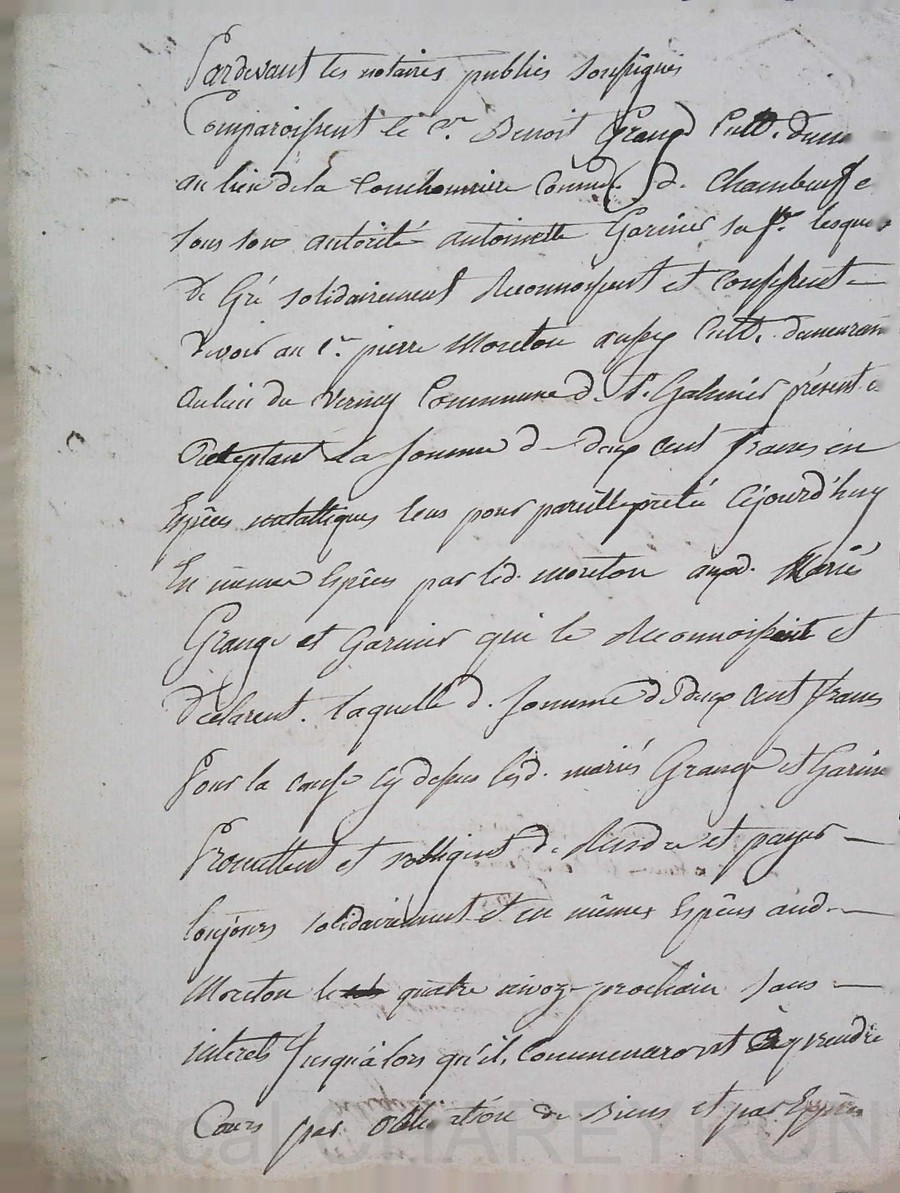 Pardevant les notaires publics soussignés
Comparoissent le Cn. Benoit Grange Cult. demt
au lieu de la Conchonniere Commune de Chambeuf e
sous son autorité antoinette Garnier sa fe. lesque
de Gré solidairement Reconnoissent et Confessent
devoir au Cn. pierre Moreton aussy Cult. demeuran
au lieu du Vernay Commune d. St. Galmier présent e
acceptant la somme de deux cent francs en
Espèces metalliques leus pour pareille pretée Cejourd'huy
En meme Espèces par led. moreton auxd. Mariés
Grange et Garnier qui le Reconnoissent et
Déclarent. laquelle d. somme de deux cent francs
Pour la cause cy dessus lesd. mariés Grange et Garnie
Promettent et sobligent de Rendre et payer
toujours solidairement et en mêmes Espèces aud.
Moreton le quatre nivoz prochain sans
interets Jusqu'alors qu'ils Commenceront à prendre
Cours par obligation de Biens et par Exprès
Pascal CHAREYRON